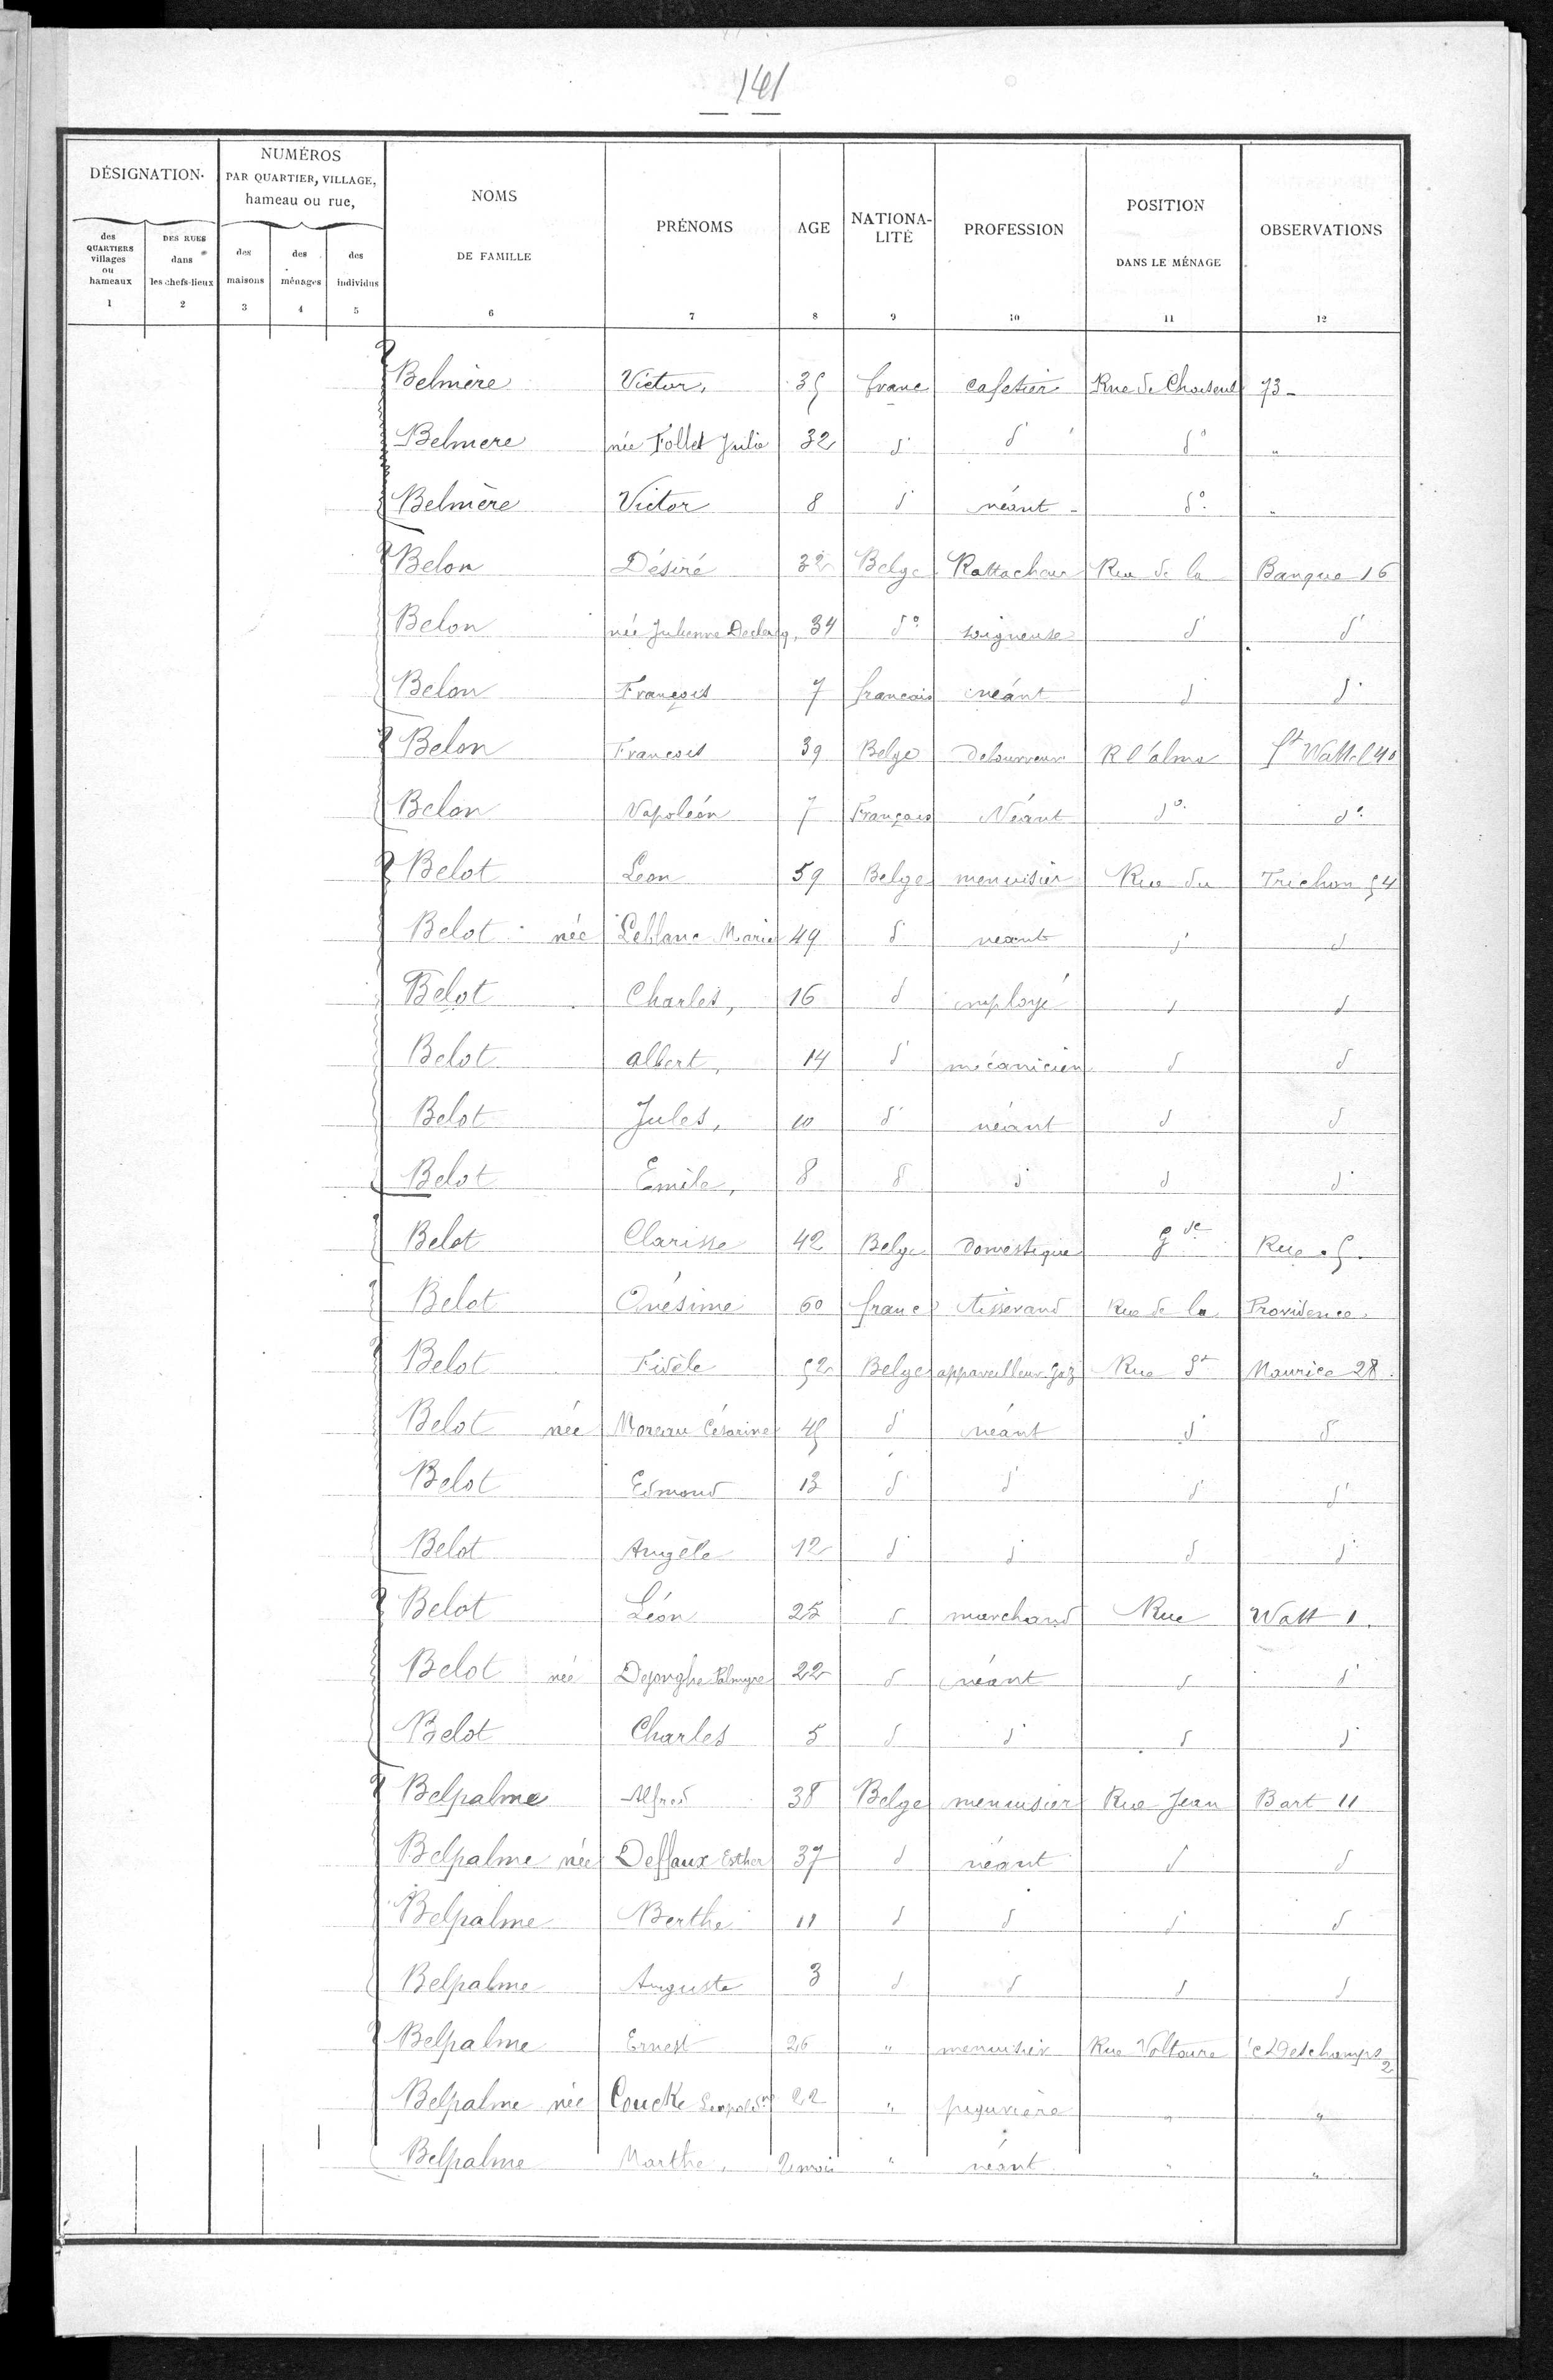 141
DÉSIGNATION NUMÉROS PAR QUARTIER, VILLAGE, hameau ou rue, NOMS DE FAMILLE PRÉNOMS AGE NATIONALITÉ PROFESSION POSITION DANS LE MÉNAGE OBSERVATIONS
des QUARTIERS villages ou hameaux DES RUES dans les chefs-lieux des maisons des ménages des individus
1 2 3 4 5 6 7 8 9 10 11 12
Belmère Victor, 35 franc cafetier Rue de Choiseul 73
Belmere née Follet Julie 32 d d d° "
Belmère Victor 8 d néant d° "
Belon Désiré 32 Belge Rattacheur Rue de la Banque 16
Belon née Julienne Declercq, 34 d° soigneuse d d
Belon François 7 francais néant d d
Belon François 39 Belge debourreur R l'alma ft Wattel 40
Belon Napoléon 7 Français Néant d° d°
Belot Leon 59 Belge menuisier Rue du Trichon 54
Belot née Leblanc Marie 49 d néant d d
Belot Charles, 16 d employé d d
Belot albert, 14 d mécanicien d d
Belot Jules, 10 d néant d d
Belot Emile, 8 d d d d
Belot Clarisse 42 Belge Domestique Gde Rue 5.
Belot Onésime 60 franc tisserand Rue de la Providence
Belot Fidèle 52 Belge appareilleur gaz Rue St Maurice 28.
Belot née Moreau Césarine 45 d néant d d
Belot Edmond 13 d d d d
Belot Angèle 12 d d d d
Belot Léon 25 d marchand Rue Watt 1.
Belot née Dejonghe Palmyre 22 d néant d d
Belot Charles 5 d d d d
Belpalme Alfred 38 Belge menuisier Rue Jean Bart 11
Belpalme née Deffaux Esther 37 d néant d d
Belpalme Berthe 11 d d d d
Belpalme Auguste 3 d d d d
Belpalme Ernest 26 " menuisier Rue Voltaire c Deschamps 2
Belpalme née Coucke Leopoldne 22 " piqurière " "
Belpalme Marthe, 2 mois " néant " "